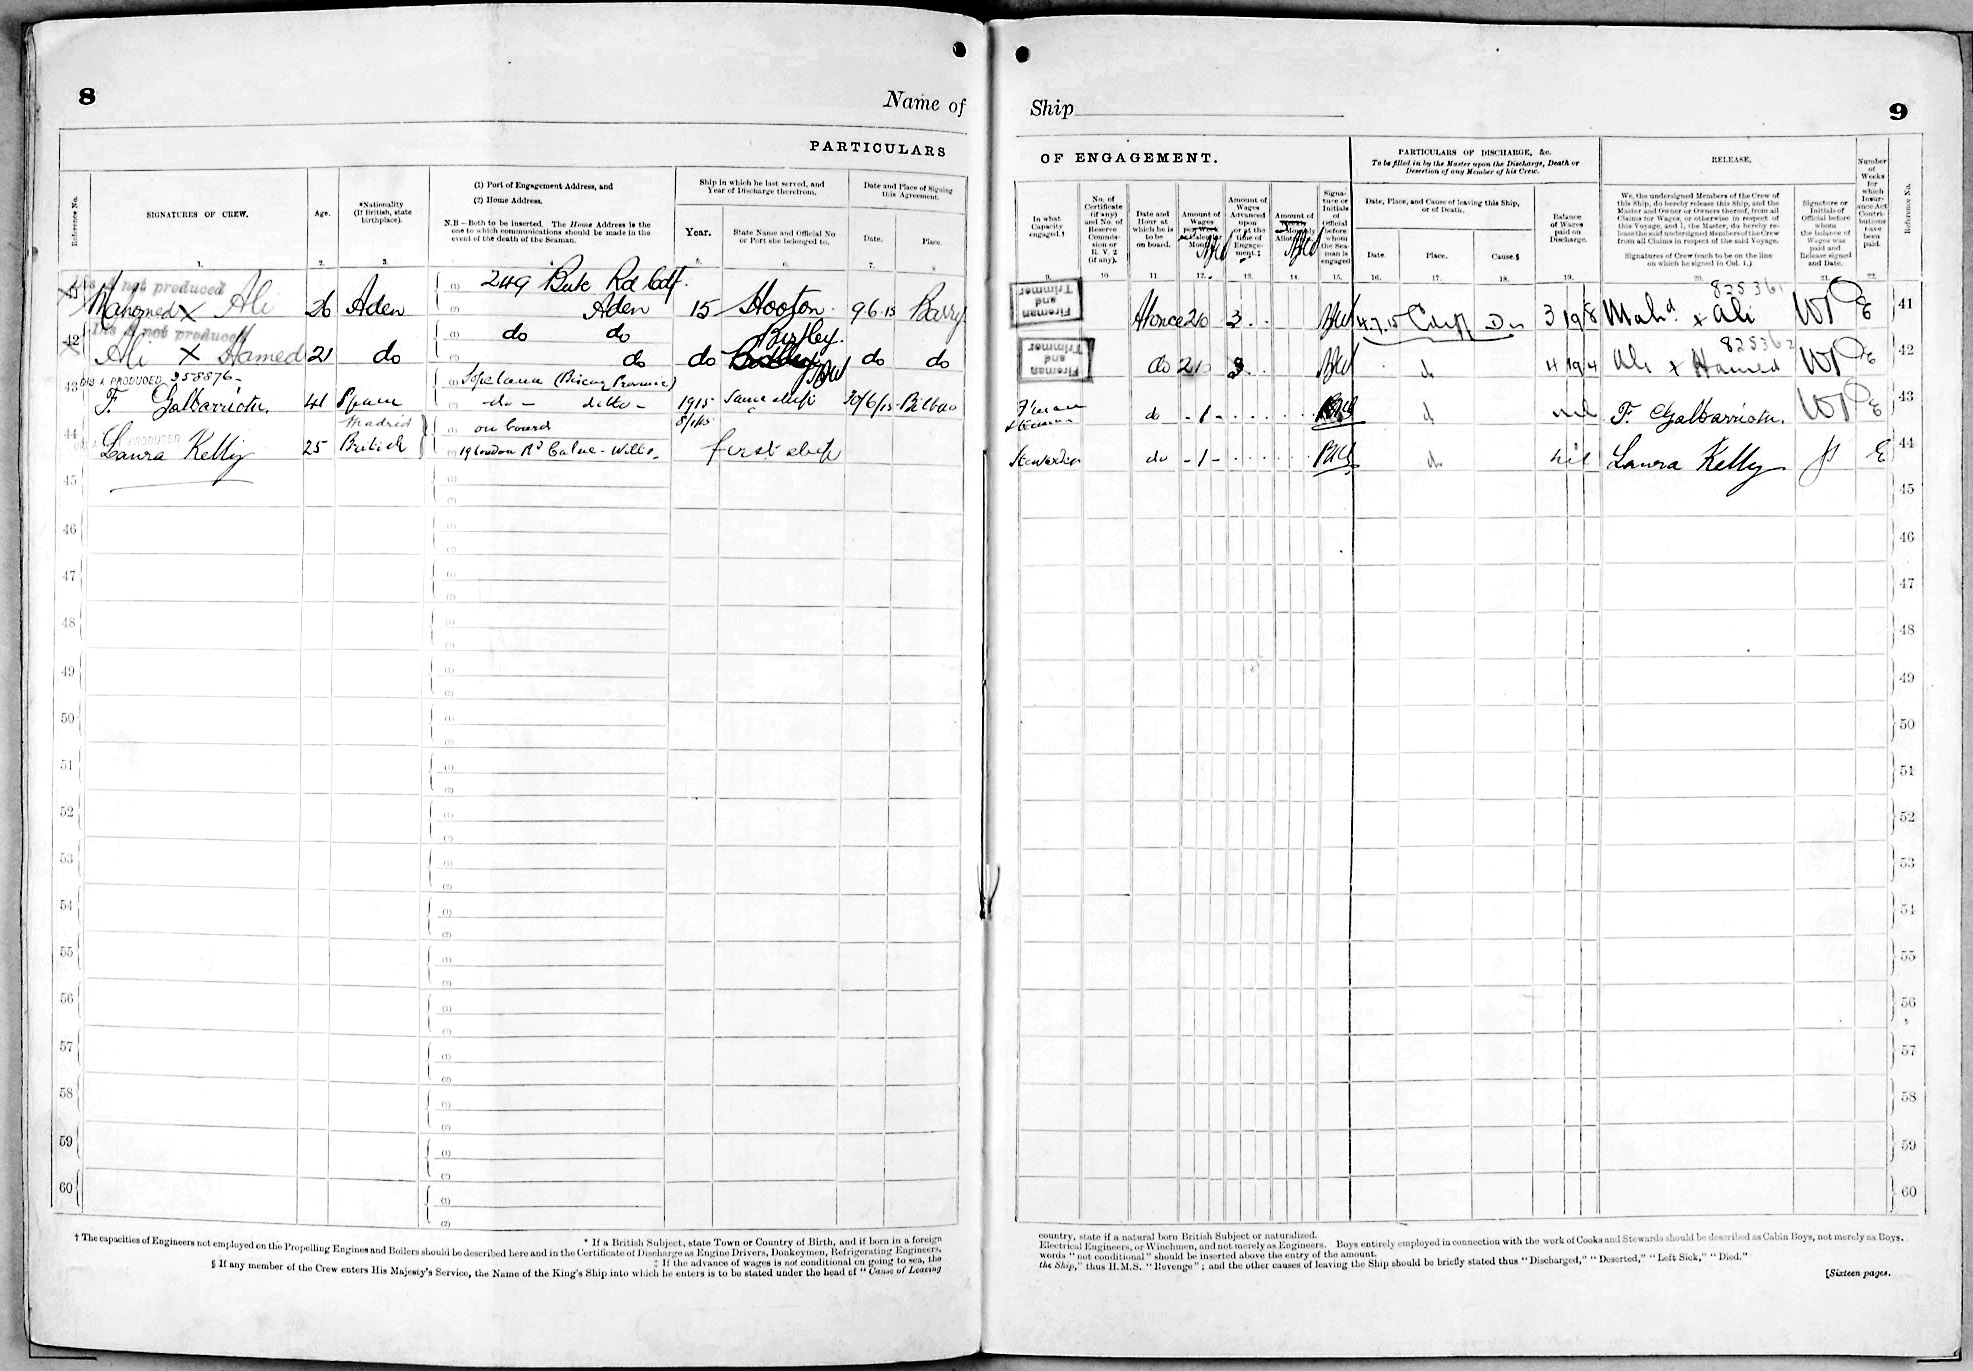 8
Name of
PARTICULARS
Reference No.
SIGNATURES OF CREW.
Age.
*Nationality
(If British, state
birthplace).
(1) Port of Engagement Address, and
(2) Home Address.
N.B.—Both to be inserted. The Home Address is the
one to which communications should be made in the
event of the death of the Seaman.
Ship in which he last served, and
Year of Discharge therefrom.
Year.
State Name and Official No
or Port she belonged to.
Date and Place of Signing
this Agreement.
Date.
Place.
1. 2. 3. 5. 6. 7. 8
Dis A not produced
Mahomed X Ali 26 Aden (1) 249 Bute Rd Cdf.
Aden 15 Hooton 9.6.15 Barry
Dis A not produced
42 Ali X Hamed 21 do (1) do do
do do Birtley. do do
43 DIS A PRODUCED 358876
F. Galbarriotu. 41 Spain (1) Sopelana (Biscay Province)
do ditto 1915 Same ship 30/6/15 Bilbao
44 PRODUCED
Laura Kelly 25 Madrid British (1) on board 8/1/15
19 London Rd Calne - Wilts. first ship
45
46
47
48
49
50
51
52
53
54
55
56
57
58
59
60
† The capacities of Engineers not employed on the Propelling Engines and Boilers should be described here and in the Certificate of Discharge as Engine Drivers, Donkeymen, Refrigerating Engineers,
* If a British Subject, state Town or Country of Birth, and if born in a foreign
‡ If the advance of wages is not conditional on going to sea, the
§ If any member of the Crew enters His Majesty's Service, the Name of the King's Ship into which he enters is to be stated under the head of "Cause of Leaving
Ship
9
OF ENGAGEMENT.
PARTICULARS OF DISCHARGE, &c.
To be filled in by the Master upon the Discharge, Death or
Desertion of any Member of his Crew.
RELEASE.
Number
of
Weeks
for
which
Insur-
ance Act
Contri-
butions
have
been
paid.
Reference No.
In what
Capacity
engaged.†
No. of
Certificate
(if any)
and No. of
Reserve
Commis-
sion or
R. V. 2
(if any).
Date and
Hour at
which he is
to be
on board.
Amount of
Wages
per Week
Calendar
Month
Amount of
Wages
Advanced
upon
or at the
time of
Engage-
ment.‡
Amount of
Allot
Signa-
ture or
Initials
of
Official
before
whom
the Sea-
man is
engaged
Date, Place, and Cause of leaving this Ship,
or of Death.
Date.
Place.
Cause.§
Balance
of Wages
paid on
Discharge.
We, the undersigned Members of the Crew of
this Ship, do hereby release this Ship, and the
Master and Owner or Owners thereof, from all
Claims for Wages, or otherwise in respect of
this Voyage, and I, the Master, do hereby re-
lease the said undersigned Members of the Crew
from all Claims in respect of the said Voyage.
Signatures of Crew (each to be on the line
on which he signed in Col. 1.)
Signature or
Initials of
Official before
whom
the balance of
Wages was
paid and
Release signed
and Date.
9. 10 11 12. 13. 14. 15. 16. 17. 18. 19. 20. 21. 22.
825361
Fireman and Trimmer At once 210 3 4.7.15 Cdiff Dis 3 19 8 Mahd x Ali E 41
825362
Fireman and Trimmer do 210 3 4 19 4 Ali x Hamed E 42
Fireman do -1- nil F. Galbarriotu. E 43
Stewardess do -1- nil Laura Kelly E 44
45
46
47
48
49
50
51
52
53
54
55
56
57
58
59
60
country, state if a natural born British Subject or naturalized.
Electrical Engineers, or Winchmen, and not merely as Engineers. Boys entirely employed in connection with the work of Cooks and Stewards should be described as Cabin Boys, not merely as Boys.
words "not conditional" should be inserted above the entry of the amount.
the Ship," thus H.M.S. "Revenge"; and the other causes of leaving the Ship should be briefly stated thus "Discharged," "Deserted," "Left Sick," "Died."
[Sixteen pages.